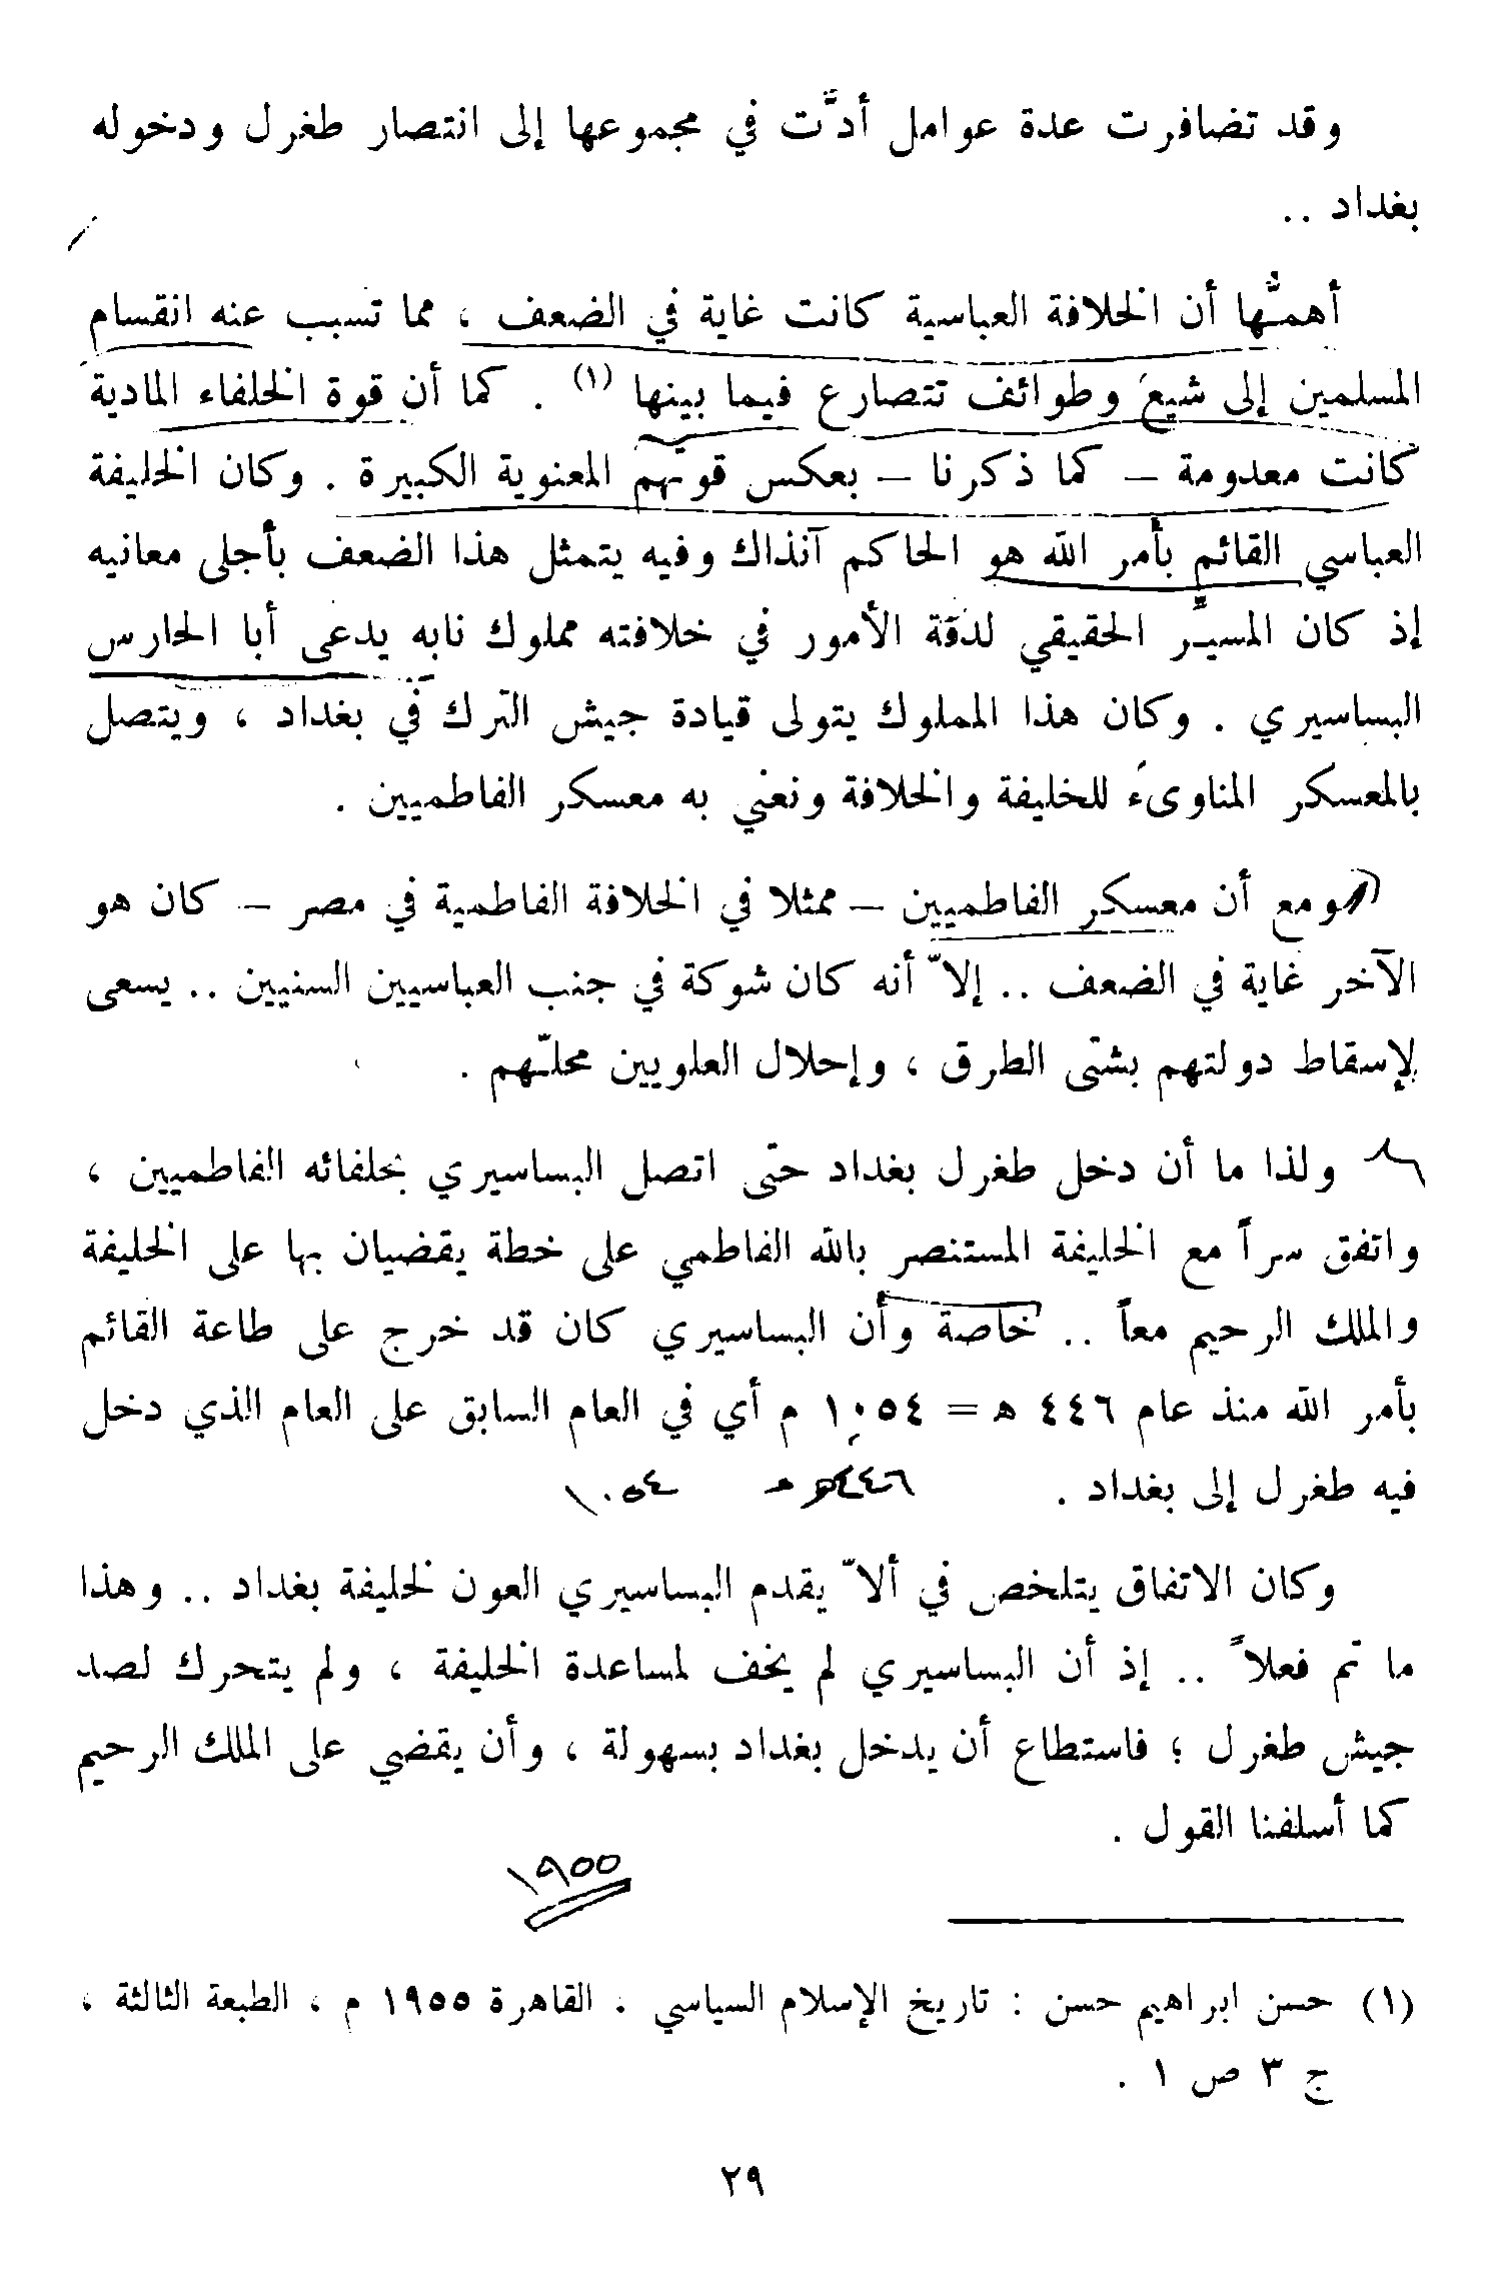 وقد تضافرت عدة عوامل أدَّت في مجموعها إلى انتصار طغرل ودخوله
بغداد ..
أهمُّها أن الخلافة العباسية كانت غاية في الضعف ، مما تسبب عنه انقسام
المسلمين إلى شيعَ وطوائف تتصارع فيما بينها (١) . كما أن قوة الخلفاء المادية
كانت معدومة – كما ذكرنا – بعكس قوتهم المعنوية الكبيرة . وكان الخليفة
العباسي القائم بأمر الله هو الحاكم آنذاك وفيه يتمثل هذا الضعف بأجلى معانيه
إذ كان المسيِّر الحقيقي لدفة الأمور في خلافته مملوك نابه يدعى أبا الحارس
البساسيري . وكان هذا المملوك يتولى قيادة جيش الترك في بغداد ، ويتصل
بالمعسكر المناوىء للخليفة والخلافة ونعني به معسكر الفاطميين .
ومع أن معسكر الفاطميين – ممثلا في الخلافة الفاطمية في مصر – كان هو
الآخر غاية في الضعف .. إلاّ أنه كان شوكة في جنب العباسيين السنيين .. يسعى
لإسقاط دولتهم بشتّى الطرق ، وإحلال العلويين محلّهم .
ولذا ما أن دخل طغرل بغداد حتى اتصل البساسيري بخلفائه الفاطميين ،
واتفق سراً مع الخليفة المستنصر بالله الفاطمي على خطة يقضيان بها على الخليفة
والملك الرحيم معاً .. خاصة وأن البساسيري كان قد خرج على طاعة القائم
بأمر الله منذ عام ٤٤٦ ه = ١٠٥٤ م أي في العام السابق على العام الذي دخل
فيه طغرل إلى بغداد . ٤٤٦ه ١٠٥٤
وكان الاتفاق يتلخص في ألاّ يقدم البساسيري العون لخليفة بغداد .. وهذا
ما تم فعلاً .. إذ أن البساسيري لم يخف لمساعدة الخليفة ، ولم يتحرك لصد
جيش طغرل ؛ فاستطاع أن يدخل بغداد بسهولة ، وأن يقضي على الملك الرحيم
كما أسلفنا القول .
١٩٥٥
(١) حسن ابراهيم حسن : تاريخ الإسلام السياسي . القاهرة ١٩٥٥ م ، الطبعة الثالثة ،
ج ٣ ص ١ .
٢٩